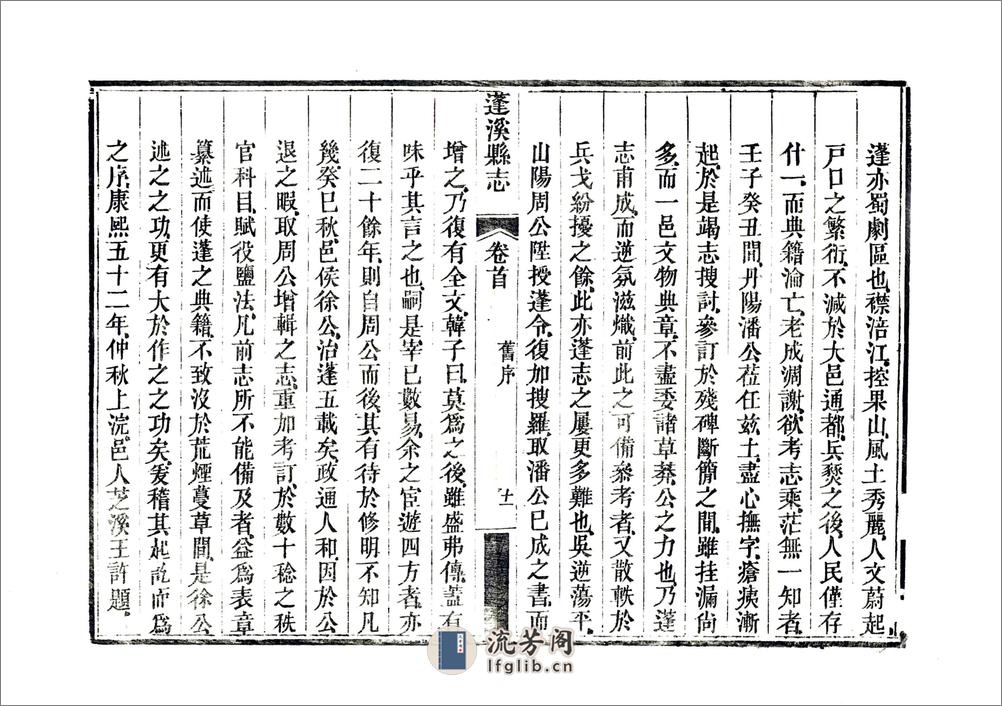 蓬亦蜀劇區也襟涪江控果山風土秀麗人文蔚起
戸口之繁衍不減於大邑通都兵燹之後人民僅存
什一而典籍淪亡老成凋謝欲考志乘茫無一知者
壬子癸丑間丹陽潘公莅任兹土盡心撫字瘡痍漸
起於是竭志搜討參訂於殘碑斷簡之間雖挂漏尙
多而一邑文物典章不盡委諸草莽公之力也乃蓬
志甫成而逆氛滋熾前此之可備叅考者又散軼於
兵戈紛擾之餘此亦蓬志之屢更多難也吳逆蕩平
山陽周公陞授蓬令復加搜羅取潘公已成之書而
蓬溪縣志
卷首
舊序
十一
增之乃復有全文韓子曰莫爲之後雖盛弗傳葢有
味乎其言之也嗣是宰已數易余之宦遊四方者亦
復二十餘年則自周公而後其有待於修明不知凡
幾癸巳秋邑侯徐公治蓬五載矣政通人和因於公
退之暇取周公增輯之志重加考訂於數十稔之秩
官科目賦役鹽法凡前志所不能備及者益爲表章
纂述而使蓬之典籍不致沒於荒煙蔓草間是徐公
述之之功更有大於作之之功矣爰稽其起訖而爲
之序康熙五十二年仲秋上浣邑人芝溪王許題
流芳阁
lfglib.cn